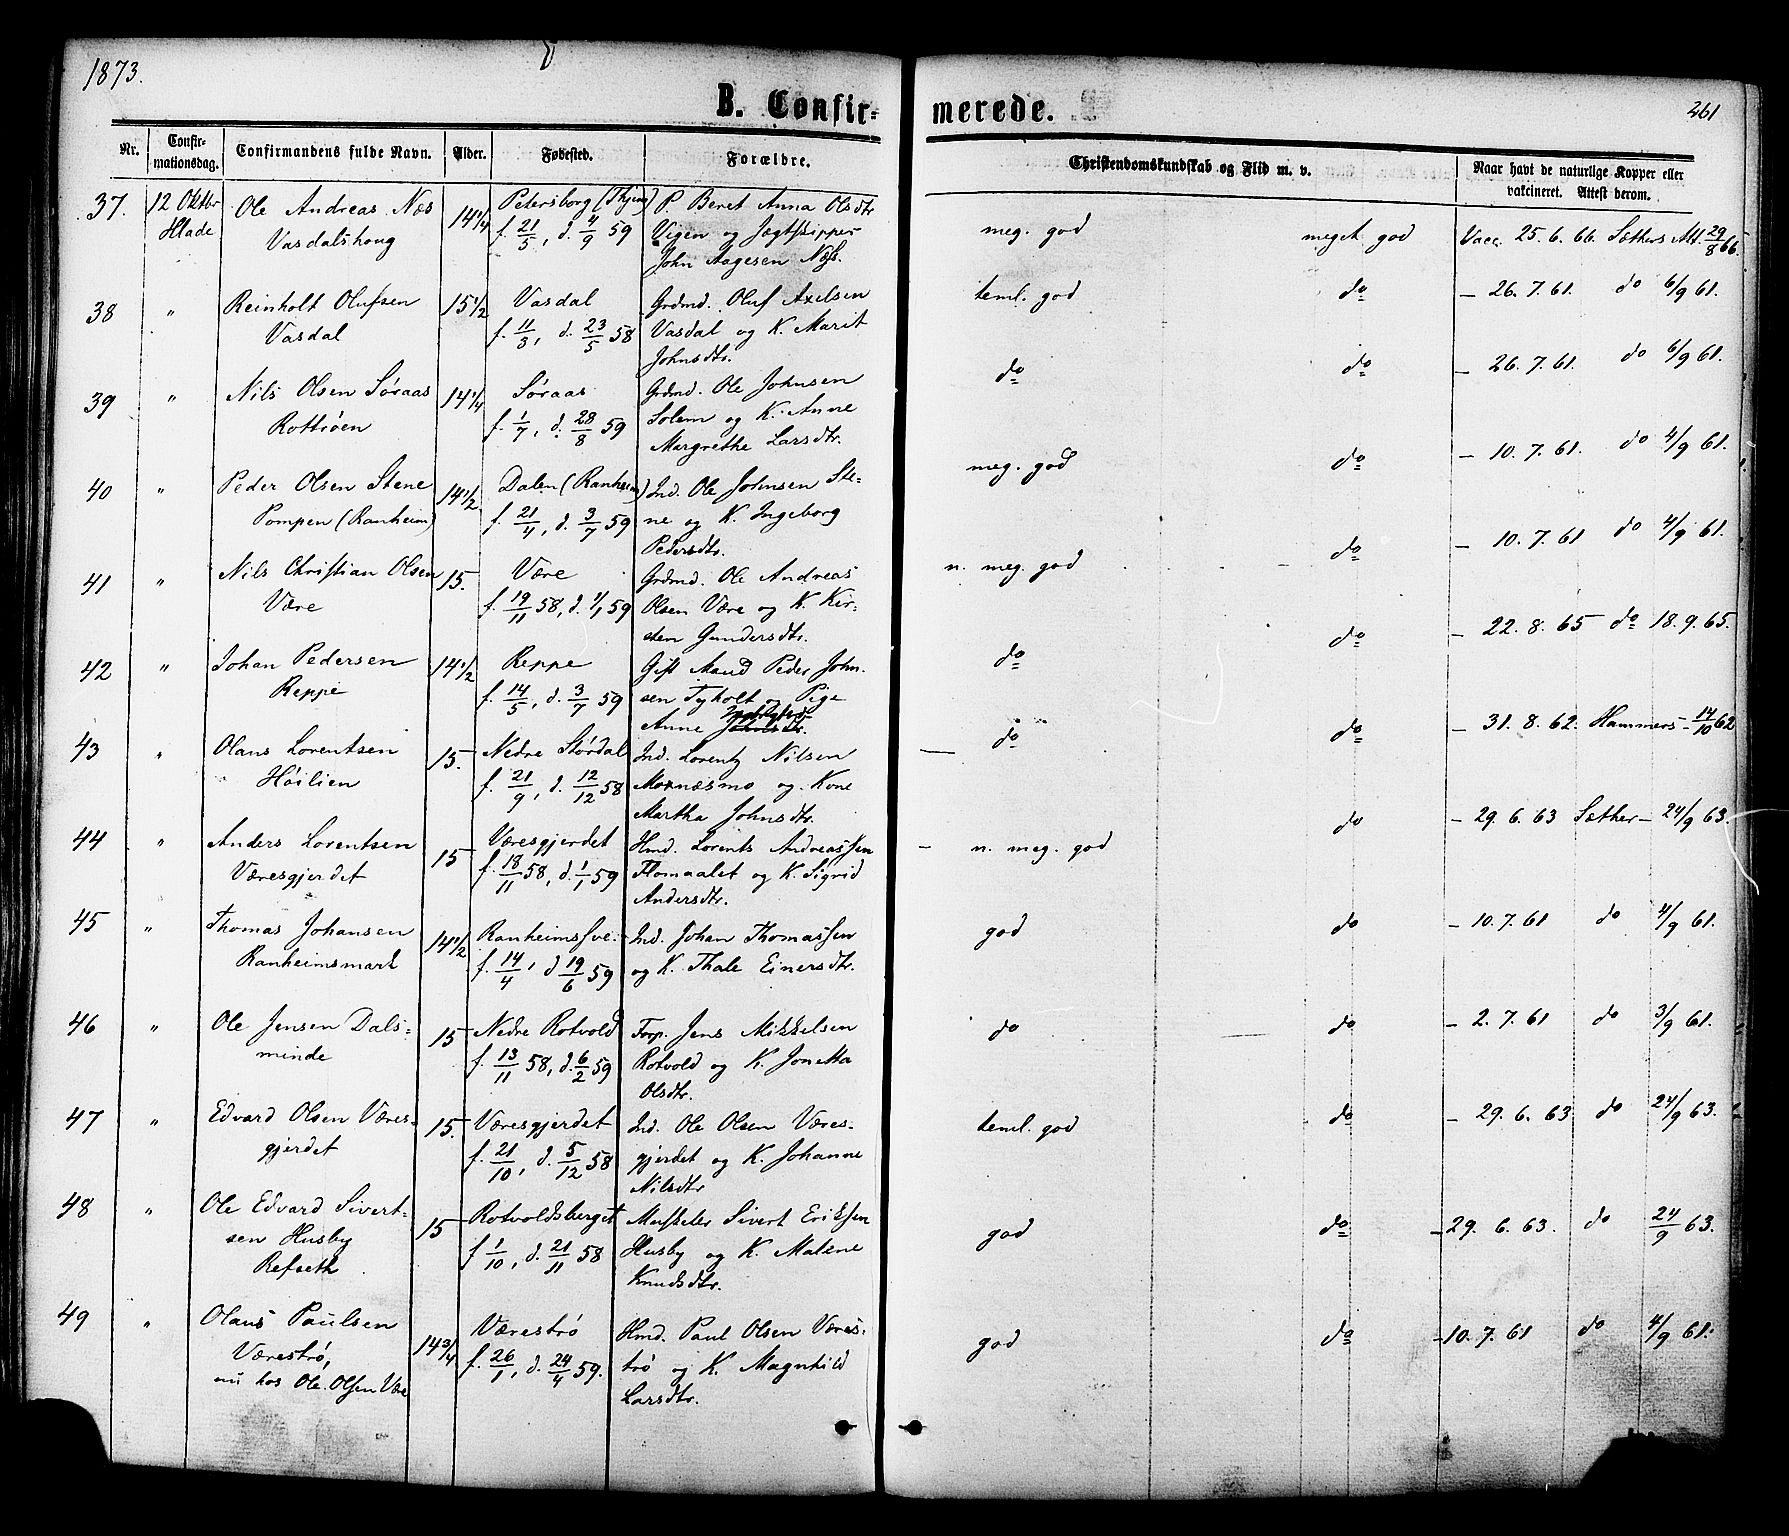 1873.
B. Confir- merede.
261
Nr.
Confir-
mationsdag.
Confirmandens fulde Navn.
Alder.
Fødested.
Forældre.
Christendomskundskab og Flid m. v.
Naar havt de naturlige Kopper eller
vakcineret. Attest derom.
37. 12 Oktbr Ole Andreas Næs 14 1/4 Petersborg (Thjem) P. Beret Anna Olsdtr meg. god meget god Vacc. 25. 6. 66. Sæthers Att. 29/8 66.
Hlade Vasdalshoug f. 21/5, d. 4/9 59 Vigen og Jægtskipper
John Aagesen Næs.
38 " Reinholt Olufsen 15 1/2 Vasdal Grdmd. Oluf Axelsen teml. god do — 26. 7. 61. do 6/9 61.
Vasdal f. 11/3, d. 23/5 58 Vasdal og K. Marit
Johnsdtr.
39 " Nils Olsen Søraas 14 1/4 Søraas Grdmd. Ole Johnsen do do — 26. 7. 61. do 6/9 61.
Rottiøen f. 1/7, d. 28/8 59 Solem og K. Anne
Margrethe Larsdtr.
40 " Peder Olsen Stene 14 1/2 Dalen (Ranheim) Ind. Ole Johnsen Ste- meg. god do — 10. 7. 61. do 4/9 61.
Pompen (Ranheim) f. 21/4, d. 3/7 59 ne og K. Ingeborg
Pedersdtr.
41 " Nils Christian Olsen 15. Være Grdmd. Ole Andreas n. meg. god do — 10. 7. 61 do 4/9 61.
Være f. 19/11 58, d. 1/1 59 Olsen Være og K. Kir-
sten Gundersdtr.
42 " Johan Pedersen 14 1/2 Reppe Gift Mand Peder John- do do — 22. 8. 65 do 18. 9. 65.
Reppe f. 14/5, d. 3/7 59 sen Tyholt og Pige
Anne Johnsdtr.
43 " Olaus Lorentsen 15. Nedre Størdal Ind. Lorentz Nilsen — do do — 31. 8. 62. Hammers — 14/10 62
Høilien f. 21/9, d. 12/12 58 Mornæsmo og Kone
Martha Johnsdtr.
44 " Anders Lorentsen 15 Væresgjerdet Hmd. Lorents Andreassen — n. meg. god do — 29. 6. 63 Sæther — 24/9 63.
Væresgjerdet f. 18/11 58, d. 1/1 59 Flomaalet og K. Sigrid
Andersdtr.
45 " Thomas Johansen 14 1/2 Ranheimssve. Ind. Johan Thomassen god do — 10. 7. 61 do 4/9 61.
Ranheimsmark f. 14/4, d 19/6 59 og K. Thale Einersdtr.
46 " Ole Jensen Dals- 15 Nedre Rotvold Forp. Jens Mikkelsen do do — 2. 7. 61 do 3/9 61.
minde f. 13/11 58, d. 6/2 59 Rotvold og K. Jonetta
Olsdtr.
47 " Edvard Olsen Væres- 15. Væresgjerdet Ind. Ole Olsen Væres- teml. god do — 29. 6. 63 do 24/9 63.
gjerdet f. 21/10, d. 5/12 58 gjerdet og K. Johanne
Nilsdtr
48 " Ole Edvard Sivert- 15 Rotvoldsberget Musketer Sivert Eriksen god do — 29. 6. 63. do 24/9 63.
sen Husby f 1/10, d. 21/11 58 Husby og K. Malene
Refseth Knudsdtr.
49 " Olaus Paulsen 14 3/4 Værestrø Hmd. Paul Olsen Væres- god do — 10. 7. 61 do 4/9 61.
Værestrø, f. 26/1, d. 24/4 59. trø og K. Magnhild
nu hos Ole Olsen Være Larsdtr.